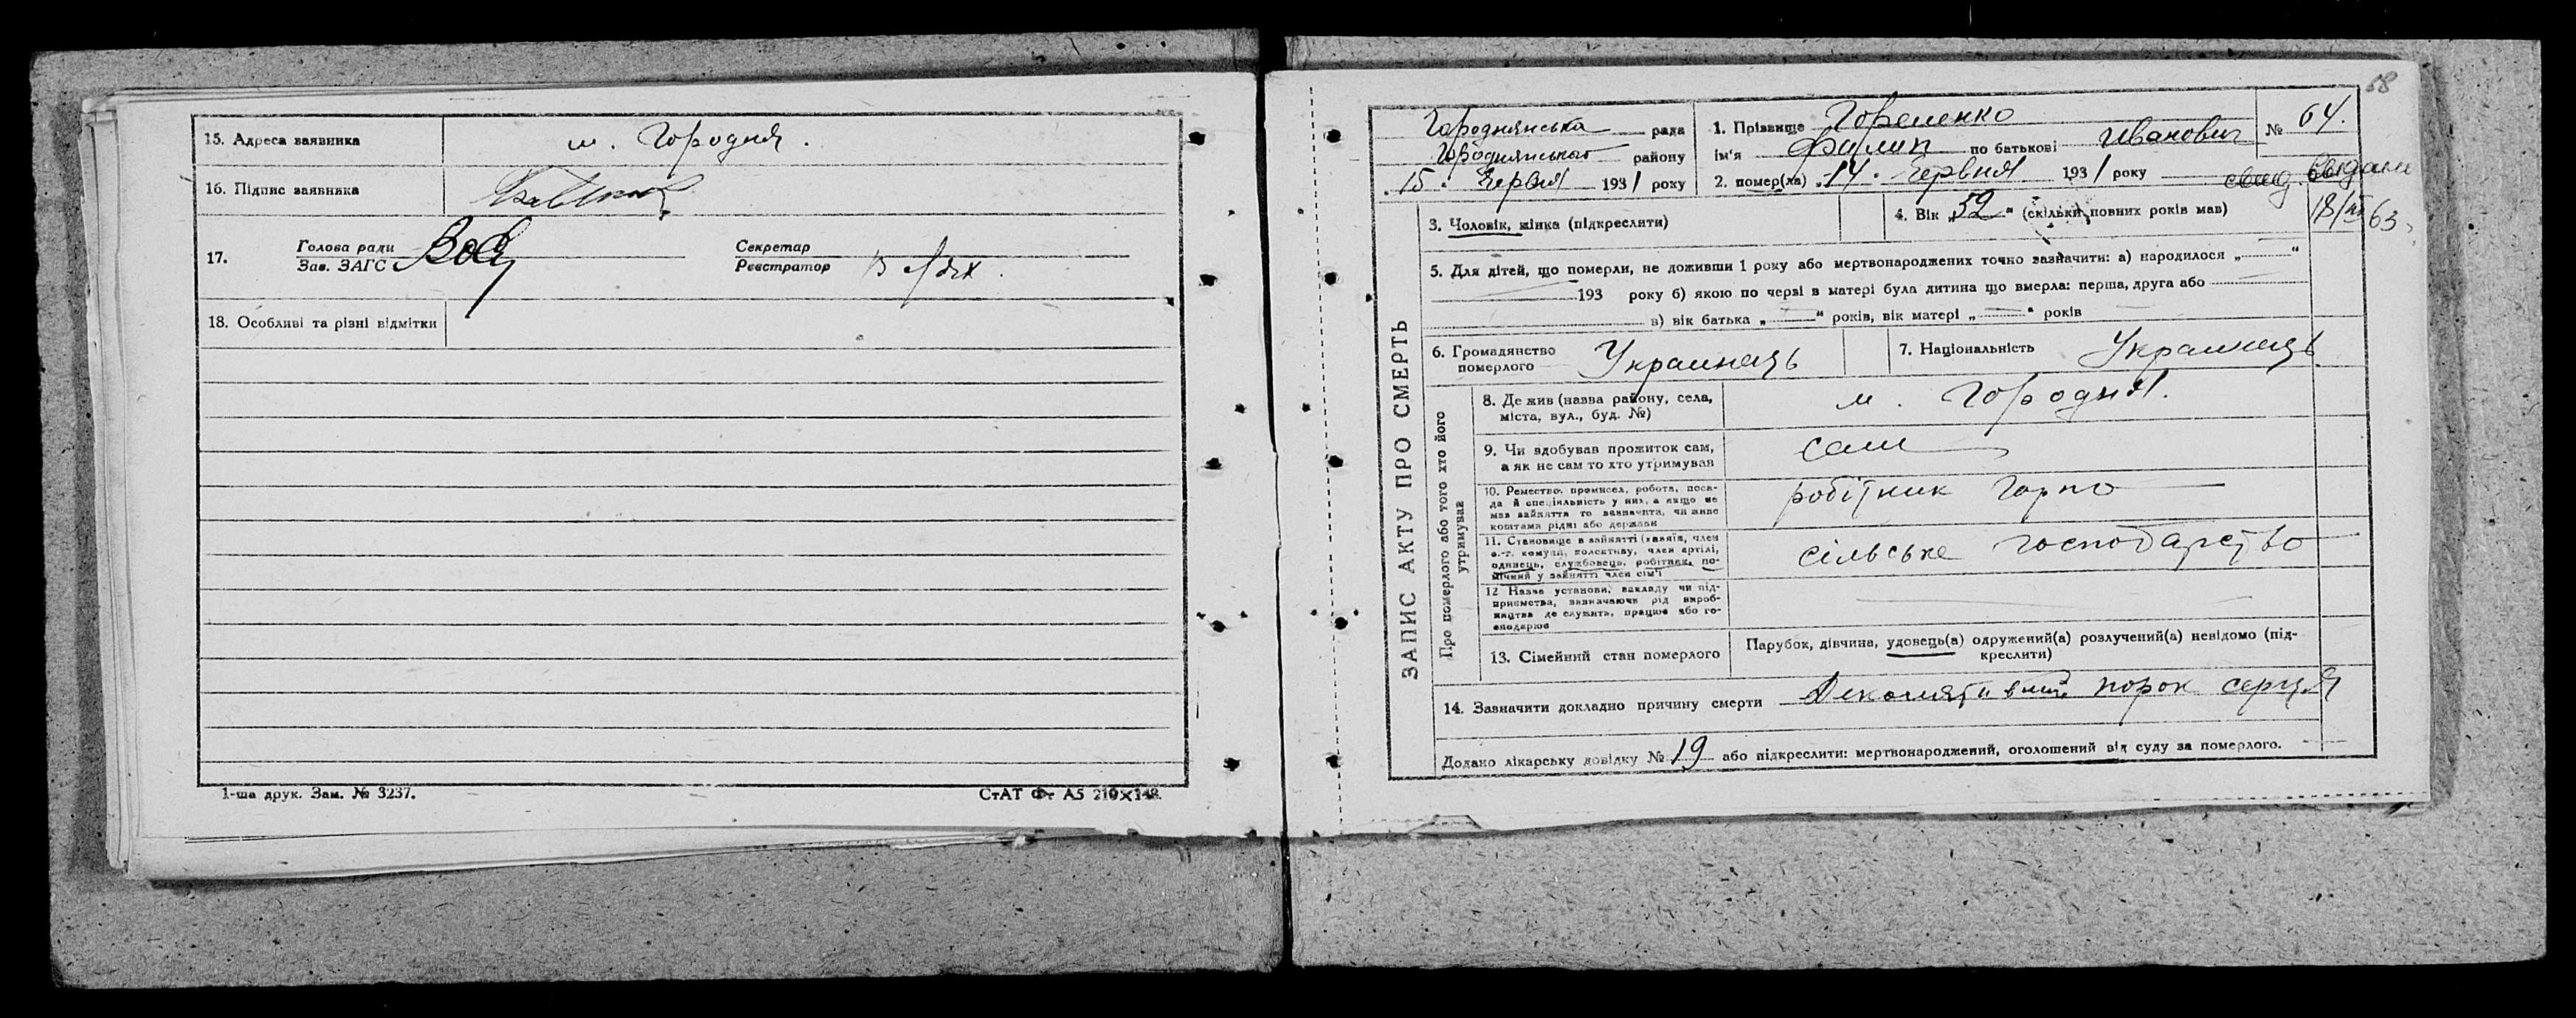 15. Адреса заявника
м. Городня.
16. Підпис заявника
17.
Голова ради
Зав. ЗАГС
Секретар
Реєстратор
18. Особливі та різні відмітки
1-ша друк. Зам. № 3237.
СтАТ Фт А5 210×148.
58
Городнянська рада
Городнянського району
„15“ Червня 1931 року
1. Прізвище Гореленко
ім'я Филип по батькові Иванович
№ 64.
2. помер(ла) „14“ Червня 1931 року
свид. выдано
18/VII 63
ЗАПИС АКТУ ПРО СМЕРТЬ
3. Чоловік, жінка (підкреслити)
4. Вік „52“ (скільки повних років мав)
5. Для дітей, що померли, не доживши 1 року або мертвонароджених точно зазначити: а) народилося „ “
193 року б) якою по черзі в матері була дитина що вмерла: перша, друга або
в) вік батька „ “ років, вік матері „ “ років
6. Громадянство
померлого
Украинець
7. Національність
Украинець
Про померлого або того хто його
утримував
8. Де жив (назва району, села,
міста, вул., буд. №)
м. Городня.
9. Чи здобував прожиток сам,
а як не сам то хто утримував
сам
10. Ремество, промисел, робота, поса-
да й спеціяльність у них, а якщо не
мав зайняття то зазначити, чи живе
коштами рідні або держави
робітник Горпо
11. Становище в зайнятті (хазяїн, член
с.-г. комуни, колективу, член артілі,
одинець, службовець, робітник, по-
мічний у зайнятті член сім'ї
сільське господарство
12 Назва установи, закладу чи під-
приємства, зазначаючи рід вироб-
ництва де служить, працює або го-
сподарює
13. Сімейний стан померлого
Парубок, дівчина, удовець(а) одружений(а) розлучений(а) невідомо (під-
креслити)
14. Зазначити докладно причину смерти порок серця
Додано лікарську довідку № 19 або підкреслити: мертвонароджений, оголошений від суду за померлого.